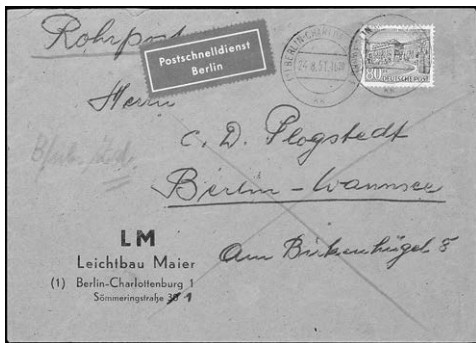 Rohrpost
Postschnelldienst
Berlin
BERLIN-CHARLOTTENBURG
24.8.51.
80
DEUTSCHE POST
Herrn
C. D. Plogstedt
Berlin-Wannsee
Am Birkenhügel 8
LM
Leichtbau Maier
(1) Berlin-Charlottenburg 1
Sömmeringstraße 30 1